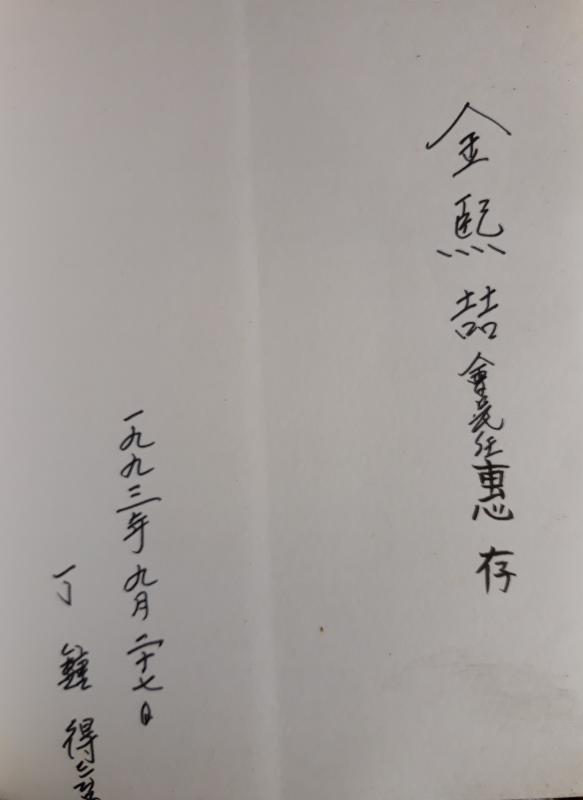 金熙喆會長任惠存
一九九三年九月二十七日
丁鍾得